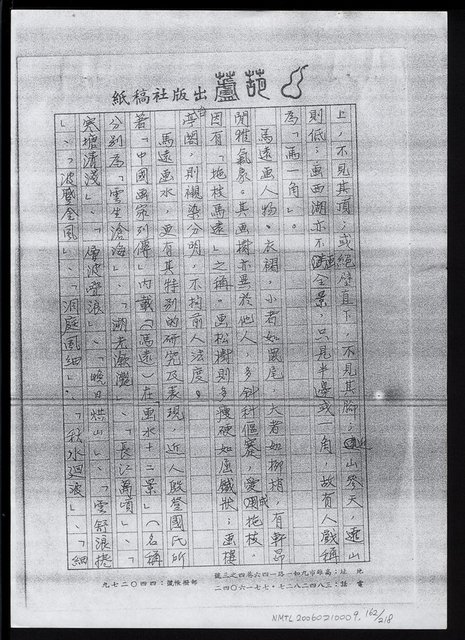 紙稿社版出蘆葫
上，不見其頂；或絕壁直下，不見其腳；近山參天，遠山
則低；畫西湖亦不畫全景，只見半邊或一角，故有人戲
為「馬一角」。
馬遠畫人物。衣褶，小者如鼠尾，大者如柳梢，有軒昂
閒雅氣象。其畫樹亦異於他人，多斜科偃蹇，愛畫拖枝。
因有「拖枝馬遠」之稱。畫松樹則多瘦硬如屈鐵狀；畫樓
臺閣，則襯染分明，不拘前人法度。
馬遠畫水，更有其特別的研究及表現，近人殷登國氏所
著「中國畫家列傳」內載（馬遠）在「畫水十二景」（名稱
分別為「雲生滄海」、「湖光瀲灩」、「長江萬頃」、「
寒塘清淺」、「層波疊浪」、「曉日烘山」、「雲舒浪捲
」、「波蹙金風」、「洞庭風細」、「秋水迴波」、「細
地址：高雄市九如一路一四六巷四之三號
電話：三八四二八二七・七七一六〇四二
郵撥帳號：四四〇二七九
NMTL20060210009 162/218